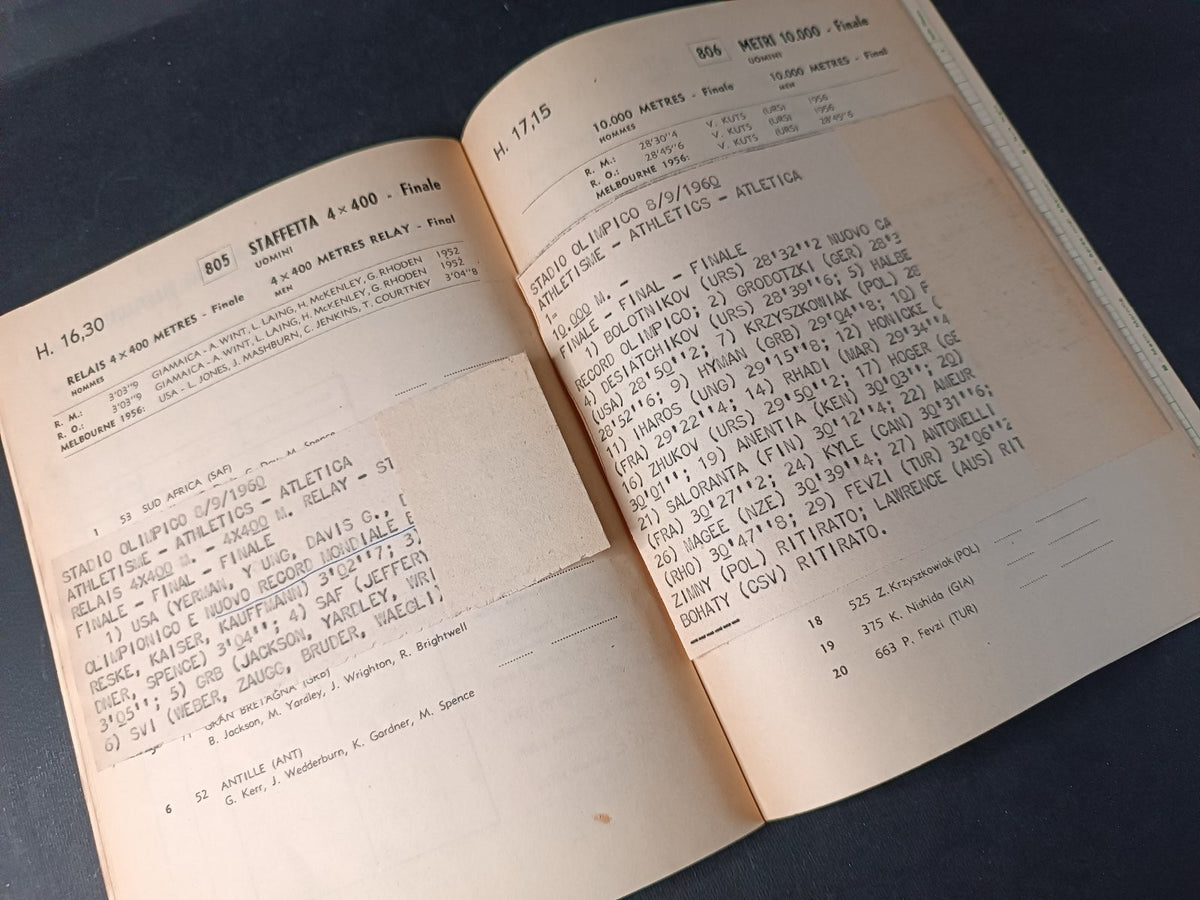 H. 16,30
805 STAFFETTA 4 × 400 - Finale
UOMINI
RELAIS 4 × 400 METRES - Finale 4 × 400 METRES RELAY - Final
HOMMES MEN
R. M.: 3'03"9 GIAMAICA - A. WINT, L. LAING, H. McKENLEY, G. RHODEN 1952
R. O.: 3'03"9 GIAMAICA - A. WINT, L. LAING, H. McKENLEY, G. RHODEN 1952
MELBOURNE 1956: USA - L. JONES, J. MASHBURN, C. JENKINS, T. COURTNEY 3'04"8
1 53 SUD AFRICA (SAF)
Spence
STADIO OLIMPICO 8/9/1960
ATHLETISME - ATHLETICS - ATLETICA
RELAIS 4X400 M. - 4X400 M. RELAY - ST
FINALE - FINAL - FINALE
1) USA (YERMAN, YOUNG, DAVIS G.,
OLIMPIONICO E NUOVO RECORD MONDIALE
RESKE, KAISER, KAUFFMANN) 3'02''7; 3)
DNER, SPENCE) 3'04''; 4) SAF (JEFFERY
3'05''; 5) GRB (JACKSON, YARDLEY, WRI
6) SVI (WEBER, ZAUGG, BRUDER, WAEGLI)
GRAN BRETAGNA
B. Jackson, M. Yardley, J. Wrighton, R. Brightwell
6 52 ANTILLE (ANT)
G. Kerr, J. Wedderburn, K. Gardner, M. Spence
H. 17,15
806 METRI 10.000 - Finale
UOMINI
10.000 METRES - Finale 10.000 METRES - Final
HOMMES MEN
R. M.: 28'30"4 V. KUTS (URS) 1956
R. O.: 28'45"6 V. KUTS (URS) 1956
MELBOURNE 1956: V. KUTS (URS) 28'45"6
STADIO OLIMPICO 8/9/1960
ATHLETISME - ATHLETICS - ATLETICA
1=
10.000 M. -
FINALE - FINAL - FINALE
1) BOLOTNIKOV (URS) 28'32''2 NUOVO CA
RECORD OLIMPICO; 2) GRODOTZKI (GER) 28'3
4) DESIATCHIKOV (URS) 28'39''6; 5) HALBE
(USA) 28'50''2; 7) KRZYSZKOWIAK (POL) 28
28'52''6; 9) HYMAN (GRB) 29'04''8; 10)
11) IHAROS (UNG) 29'15''8; 12) HONICKE (
(FRA) 29'22''4; 14) RHADI (MAR) 29'34''4
16) ZHUKOV (URS) 29'50''2; 17) HOGER (GE
30'01''; 19) ANENTIA (KEN) 30'03''; 20)
21) SALORANTA (FIN) 30'12''4; 22) AMEUR
(FRA) 30'27''2; 24) KYLE (CAN) 30'31''6;
26) MAGEE (NZE) 30'39''4; 27) ANTONELLI
(RHO) 30'47''8; 29) FEVZI (TUR) 32'06''2
ZIMNY (POL) RITIRATO; LAWRENCE (AUS) RIT
BOHATY (CSV) RITIRATO.
18 525 Z. Krzyszkowiak (POL)
19 375 K. Nishida (GIA)
20 663 P. Fevzi (TUR)